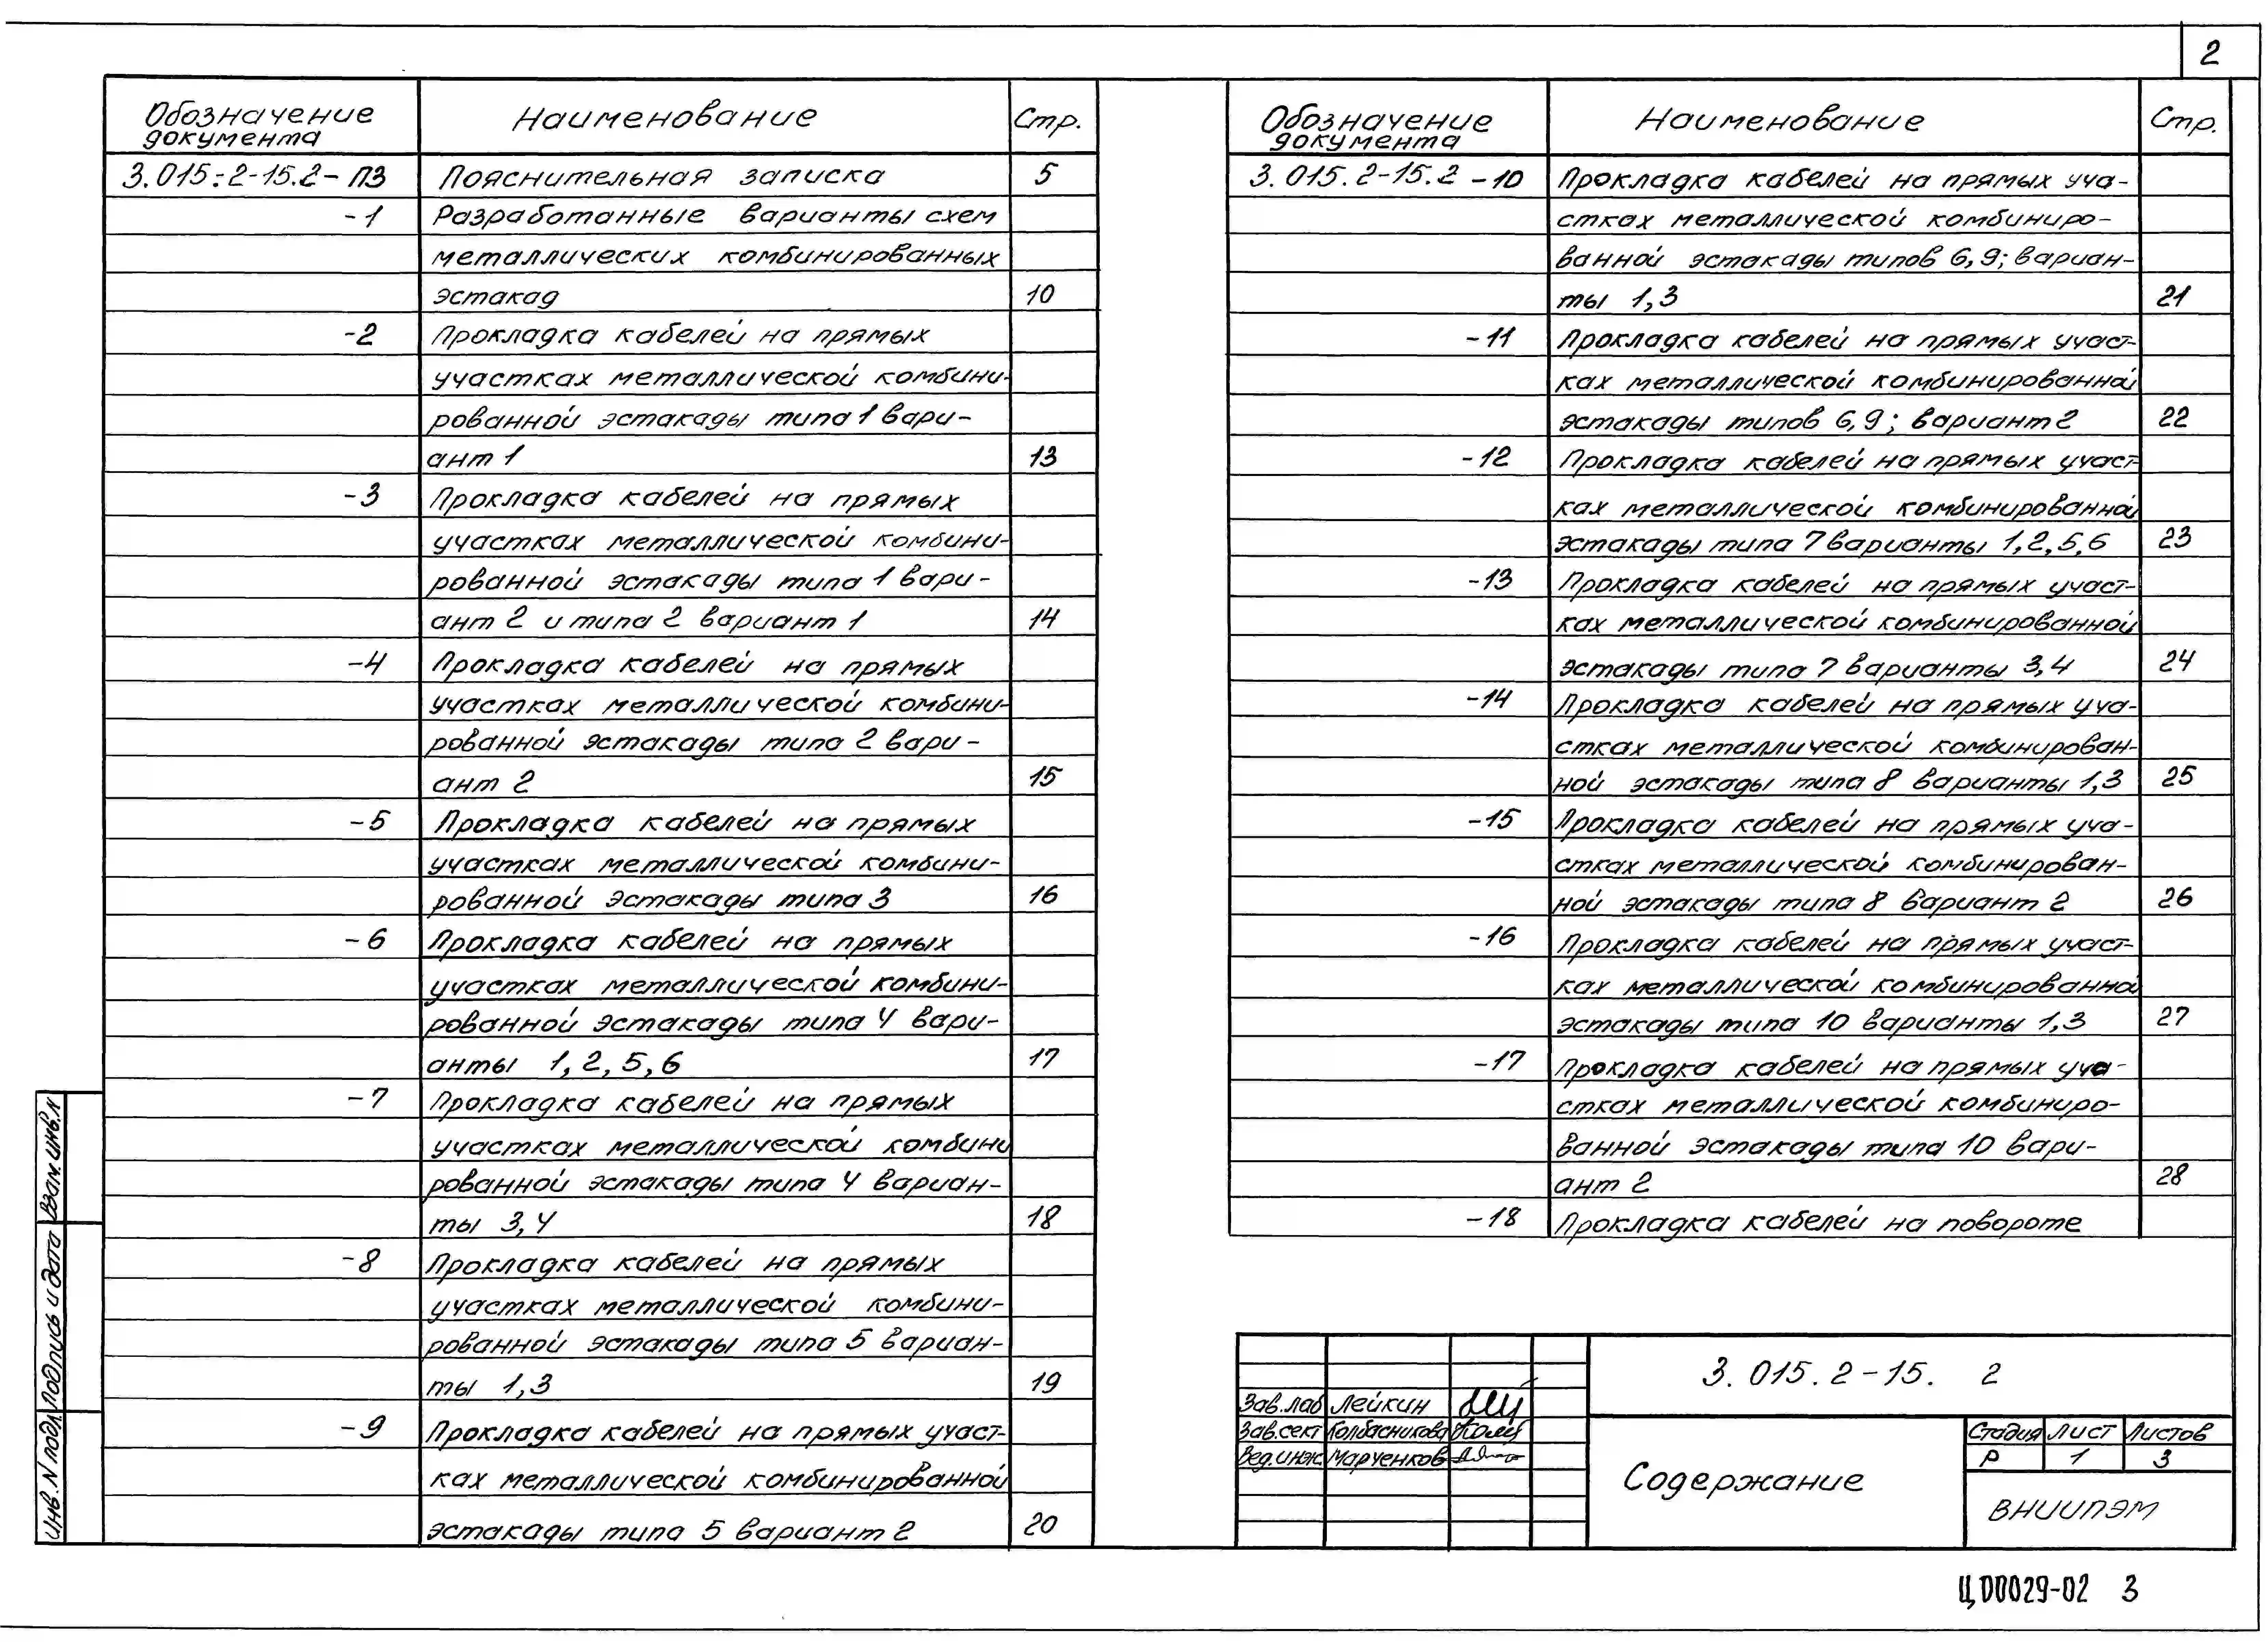 2
Обозначение документа Наименование Стр.
3.015.2-15.2-ПЗ Пояснительная записка 5
-1 Разработанные варианты схем
металлических комбинированных
эстакад 10
-2 Прокладка кабелей на прямых
участках металлической комбини-
рованной эстакады типа 1 вари-
ант 1 13
-3 Прокладка кабелей на прямых
участках металлической комбини-
рованной эстакады типа 1 вари-
ант 2 и типа 2 вариант 1 14
-4 Прокладка кабелей на прямых
участках металлической комбини-
рованной эстакады типа 2 вари-
ант 2 15
-5 Прокладка кабелей на прямых
участках металлической комбини-
рованной эстакады типа 3 16
-6 Прокладка кабелей на прямых
участках металлической комбини-
рованной эстакады типа 4 вари-
анты 1, 2, 5, 6 17
-7 Прокладка кабелей на прямых
участках металлической комбини
рованной эстакады типа 4 вариан-
ты 3, 4 18
-8 Прокладка кабелей на прямых
участках металлической комбини-
рованной эстакады типа 5 вариан-
ты 1,3 19
-9 Прокладка кабелей на прямых участ-
ках металлической комбинированной
эстакады типа 5 вариант 2 20
Обозначение документа Наименование Стр.
3.015.2-15.2-10 Прокладка кабелей на прямых уча-
стках металлической комбиниро-
ванной эстакады типов 6, 9; вариан-
ты 1,3 21
-11 Прокладка кабелей на прямых участ-
ках металлической комбинированной
эстакады типов 6, 9; вариант 2 22
-12 Прокладка кабелей на прямых участ-
ках металлической комбинированной
эстакады типа 7 варианты 1, 2, 5, 6 23
-13 Прокладка кабелей на прямых участ-
ках металлической комбинированной
эстакады типа 7 варианты 3, 4 24
-14 Прокладка кабелей на прямых уча-
стках металлической комбинирован-
ной эстакады типа 8 варианты 1,3 25
-15 Прокладка кабелей на прямых уча-
стках металлической комбинирован-
ной эстакады типа 8 вариант 2 26
-16 Прокладка кабелей на прямых участ-
ках металлической комбинированной
эстакады типа 10 варианты 1,3 27
-17 Прокладка кабелей на прямых уча-
стках металлической комбиниро-
ванной эстакады типа 10 вари-
ант 2 28
-18 Прокладка кабелей на повороте
3.015.2-15. 2
Зав.лаб Лейкин
Зав.сект Колбасникова
Вед.инж Марченков
Содержание
Стадия Лист Листов
Р 1 3
ВНИИПЭМ
Взам.инв.N
Подпись и дата
Инв.N подл.
Ц00029-02 3